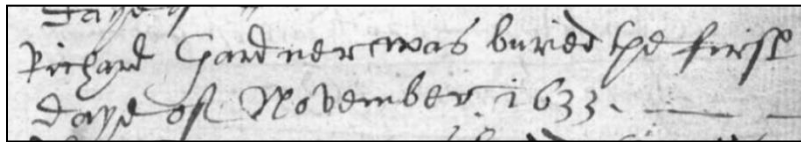 daye of
Richard Gardner was buried the first
daye of November. 1633.